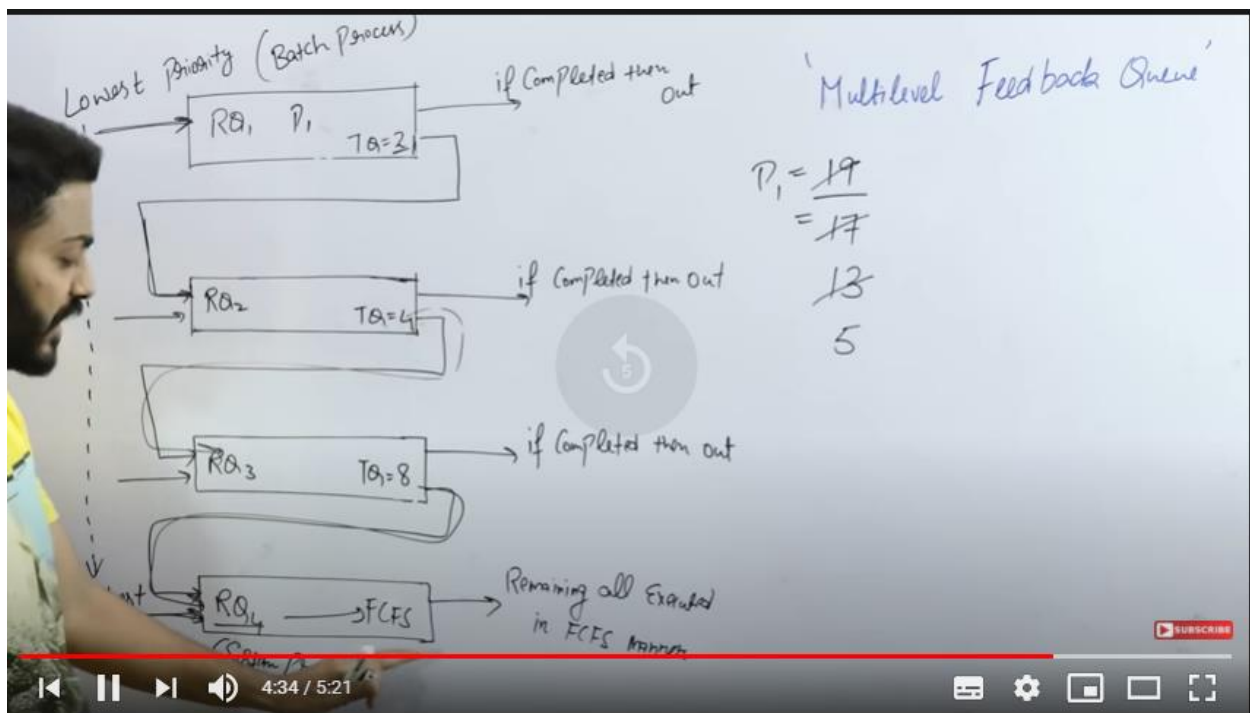 Lowest Priority (Batch Process)
'Multilevel Feedback Queue'
RQ1 P1
TQ=3
if Completed then
out
P1 = 19
= 17
13
5
RQ2
TQ=4
if Completed then out
RQ3
TQ=8
if Completed then out
RQ4 → FCFS
Remaining all Executed
in FCFS manner
(System
SUBSCRIBE
4:34 / 5:21
5